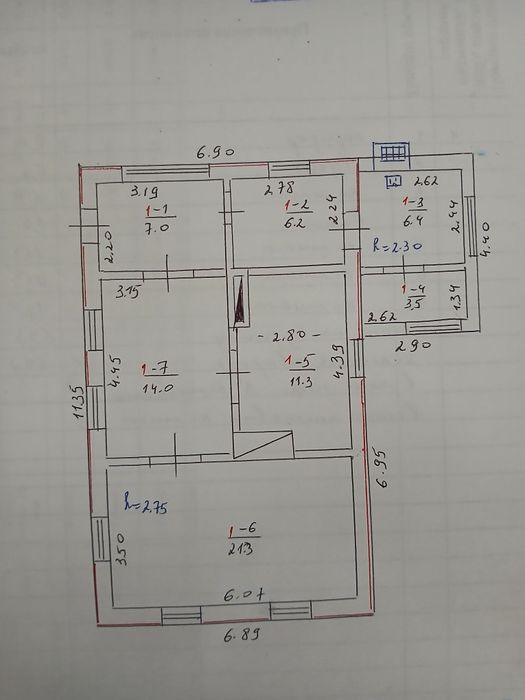 6.90
3.19
1-1
7.0
2.20
2.78
1-2
6.2
2.24
2.62
1-3
6.4
2.44
4.40
h=2.30
1-4
3.5
1.34
2.62
2.90
3.15
1-7
14.0
4.45
11.35
- 2.80 -
1-5
11.3
4.39
6.95
h=2.75
1-6
21.3
3.50
6.07
6.89